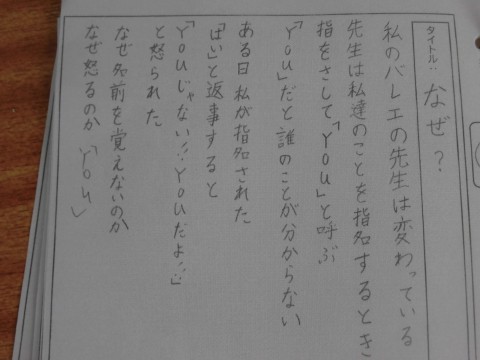 タイトル: なぜ?
私のバレエの先生は変わっている
先生は私達のことを指名するとき
指をさして、「YOU」と呼ぶ
「YOU」だと誰のことが分からない
ある日私が指名された
「はい」と返事すると
「YOUじゃない!!YOUだよ!!」
と怒られた
なぜ名前を覚えないのか
なぜ怒るのか「YOU」